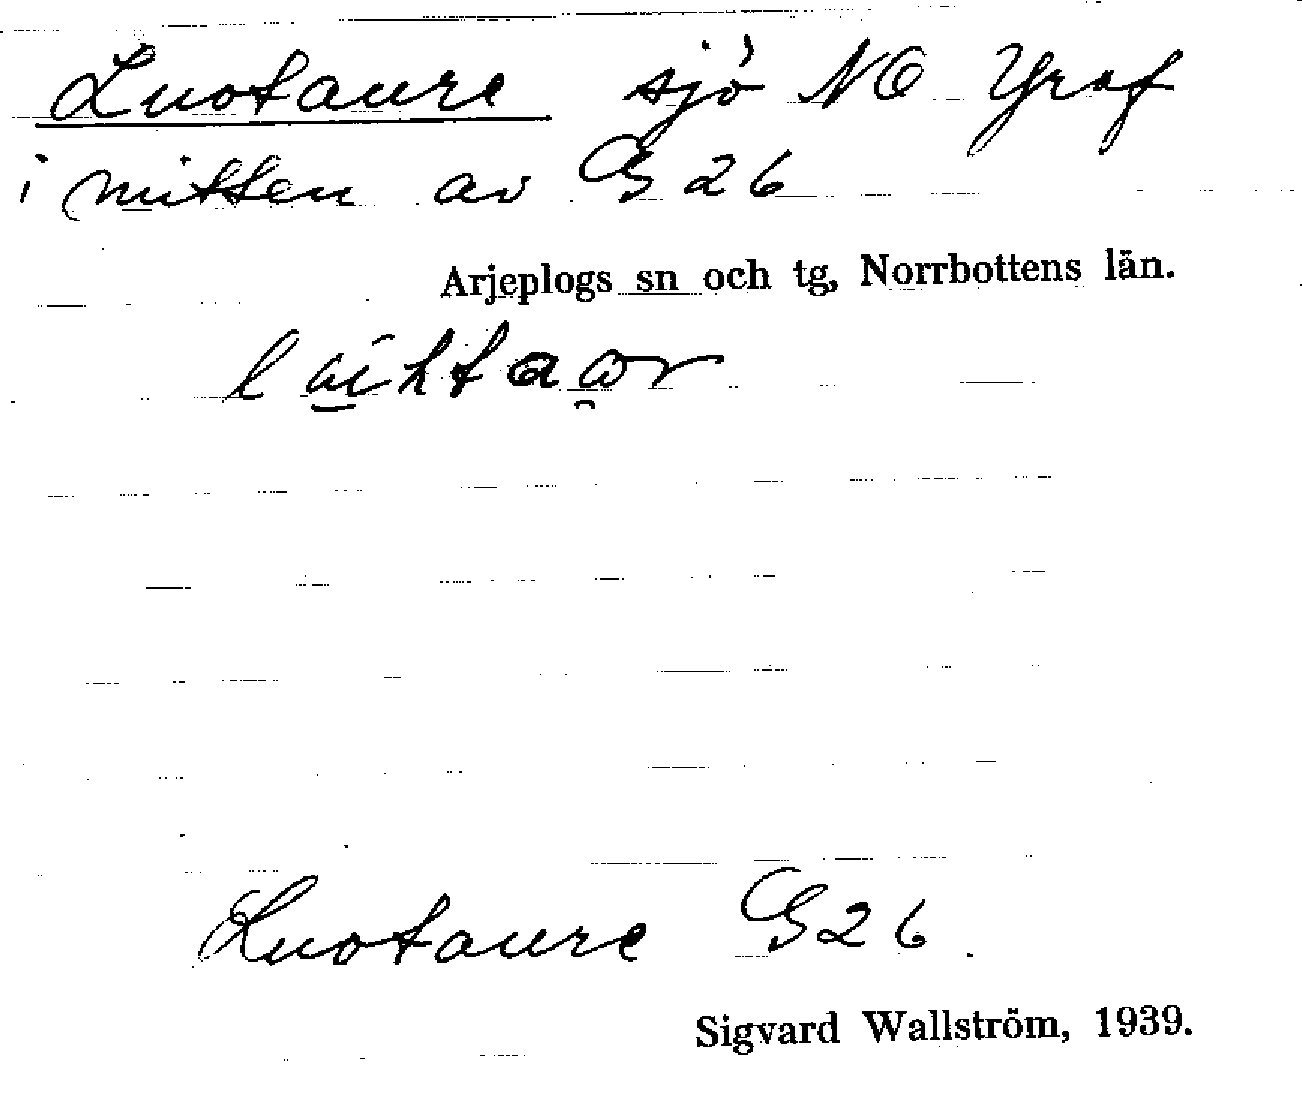 Luotaure sjö NO Yraf
i mitten av G 26
Arjeplogs sn och tg, Norrbottens län.
Luotaure G 26.
Sigvard Wallström, 1939.